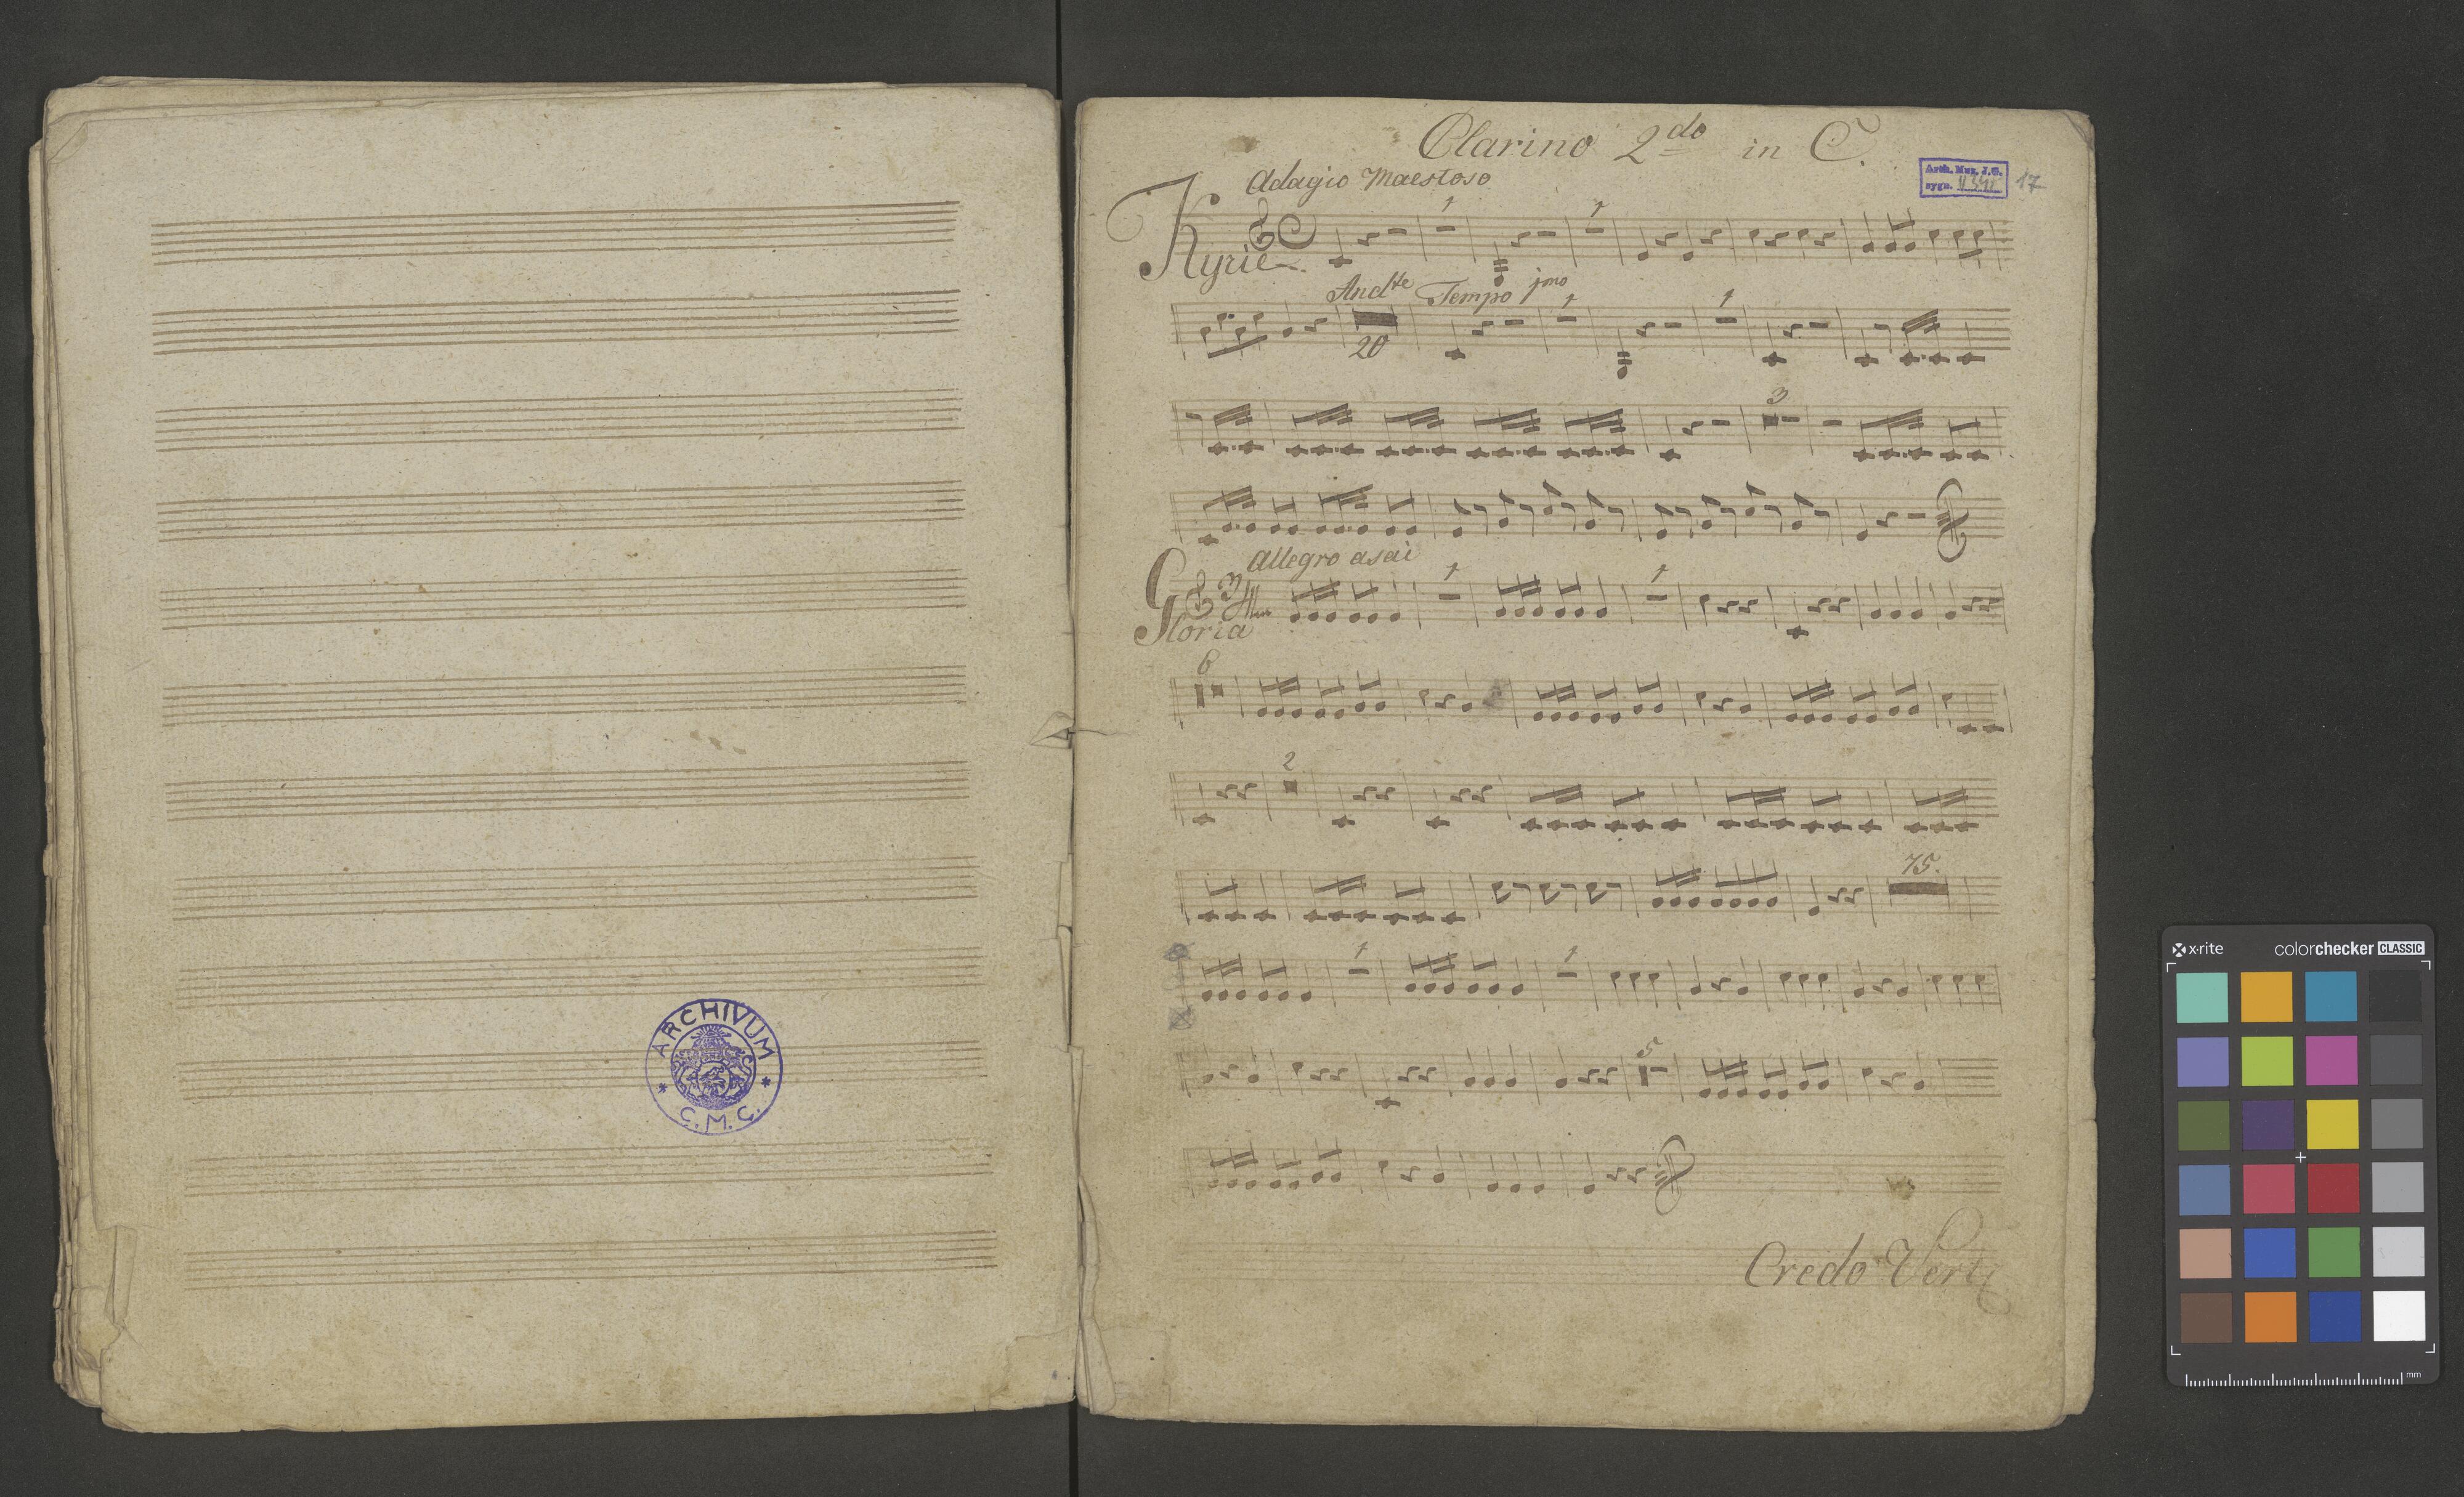 ARCHIVUM
C. M. C.
Clarino 2do in C.
Arch. Muz. J. G.
sygn.
17
Adagio Maestoso
Kyrie
1
1
Andte Tempo jmo
20
1
1
3
Allegro asai
Gloria
3
1
1
6
2
75.
1
1
5
Credo Verti
x-rite colorchecker CLASSIC
mm